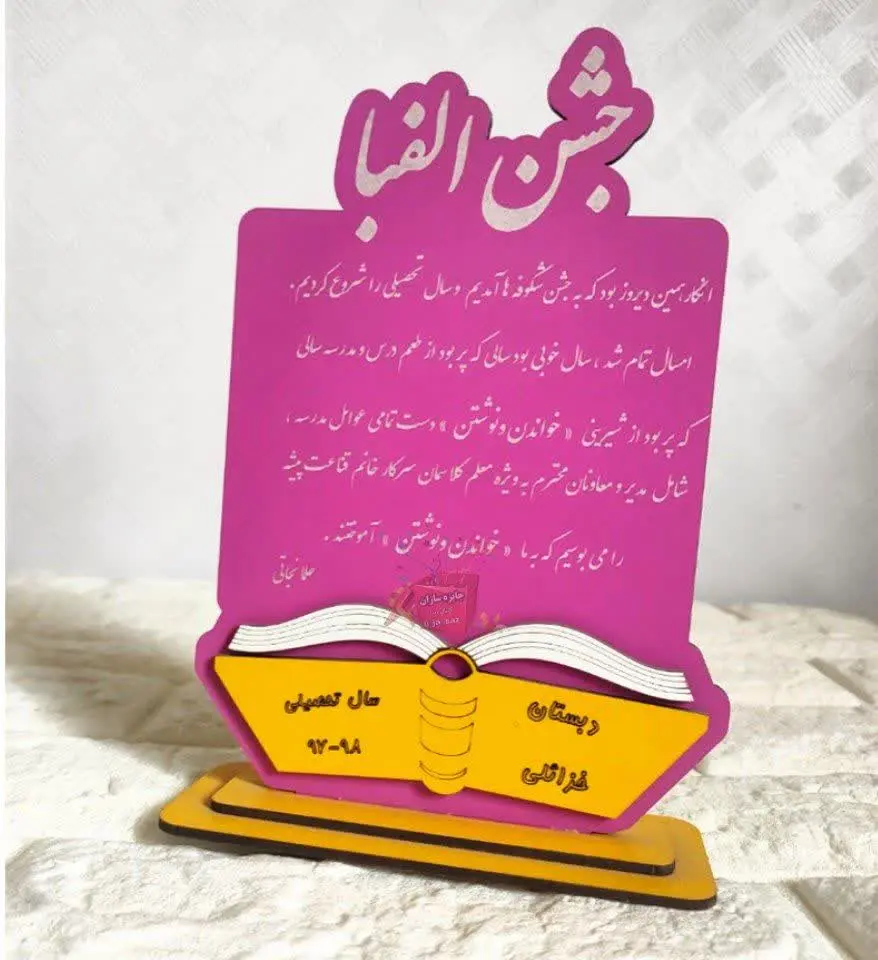 جشن الفبا
انگار همین دیروز بود که به جشن شکوفه ها آمدیم و سال تحصیلی را شروع کردیم.
امسال تمام شد ، سال خوبی بود سالی که پر بود از طعم درس و مدرسه سالی
که پر بود از شیرینی «خواندن و نوشتن» دست تمامی عوامل مدرسه ،
شامل مدیر و معاونان محترم به ویژه معلم کلاسمان سرکار خانم قناعت پیشه
را می بوسیم که به ما «خواندن و نوشتن» آموختند .
نجاتی
جایزه سازان
دبستان
خزائلی
سال تحصیلی
۹۷-۹۸